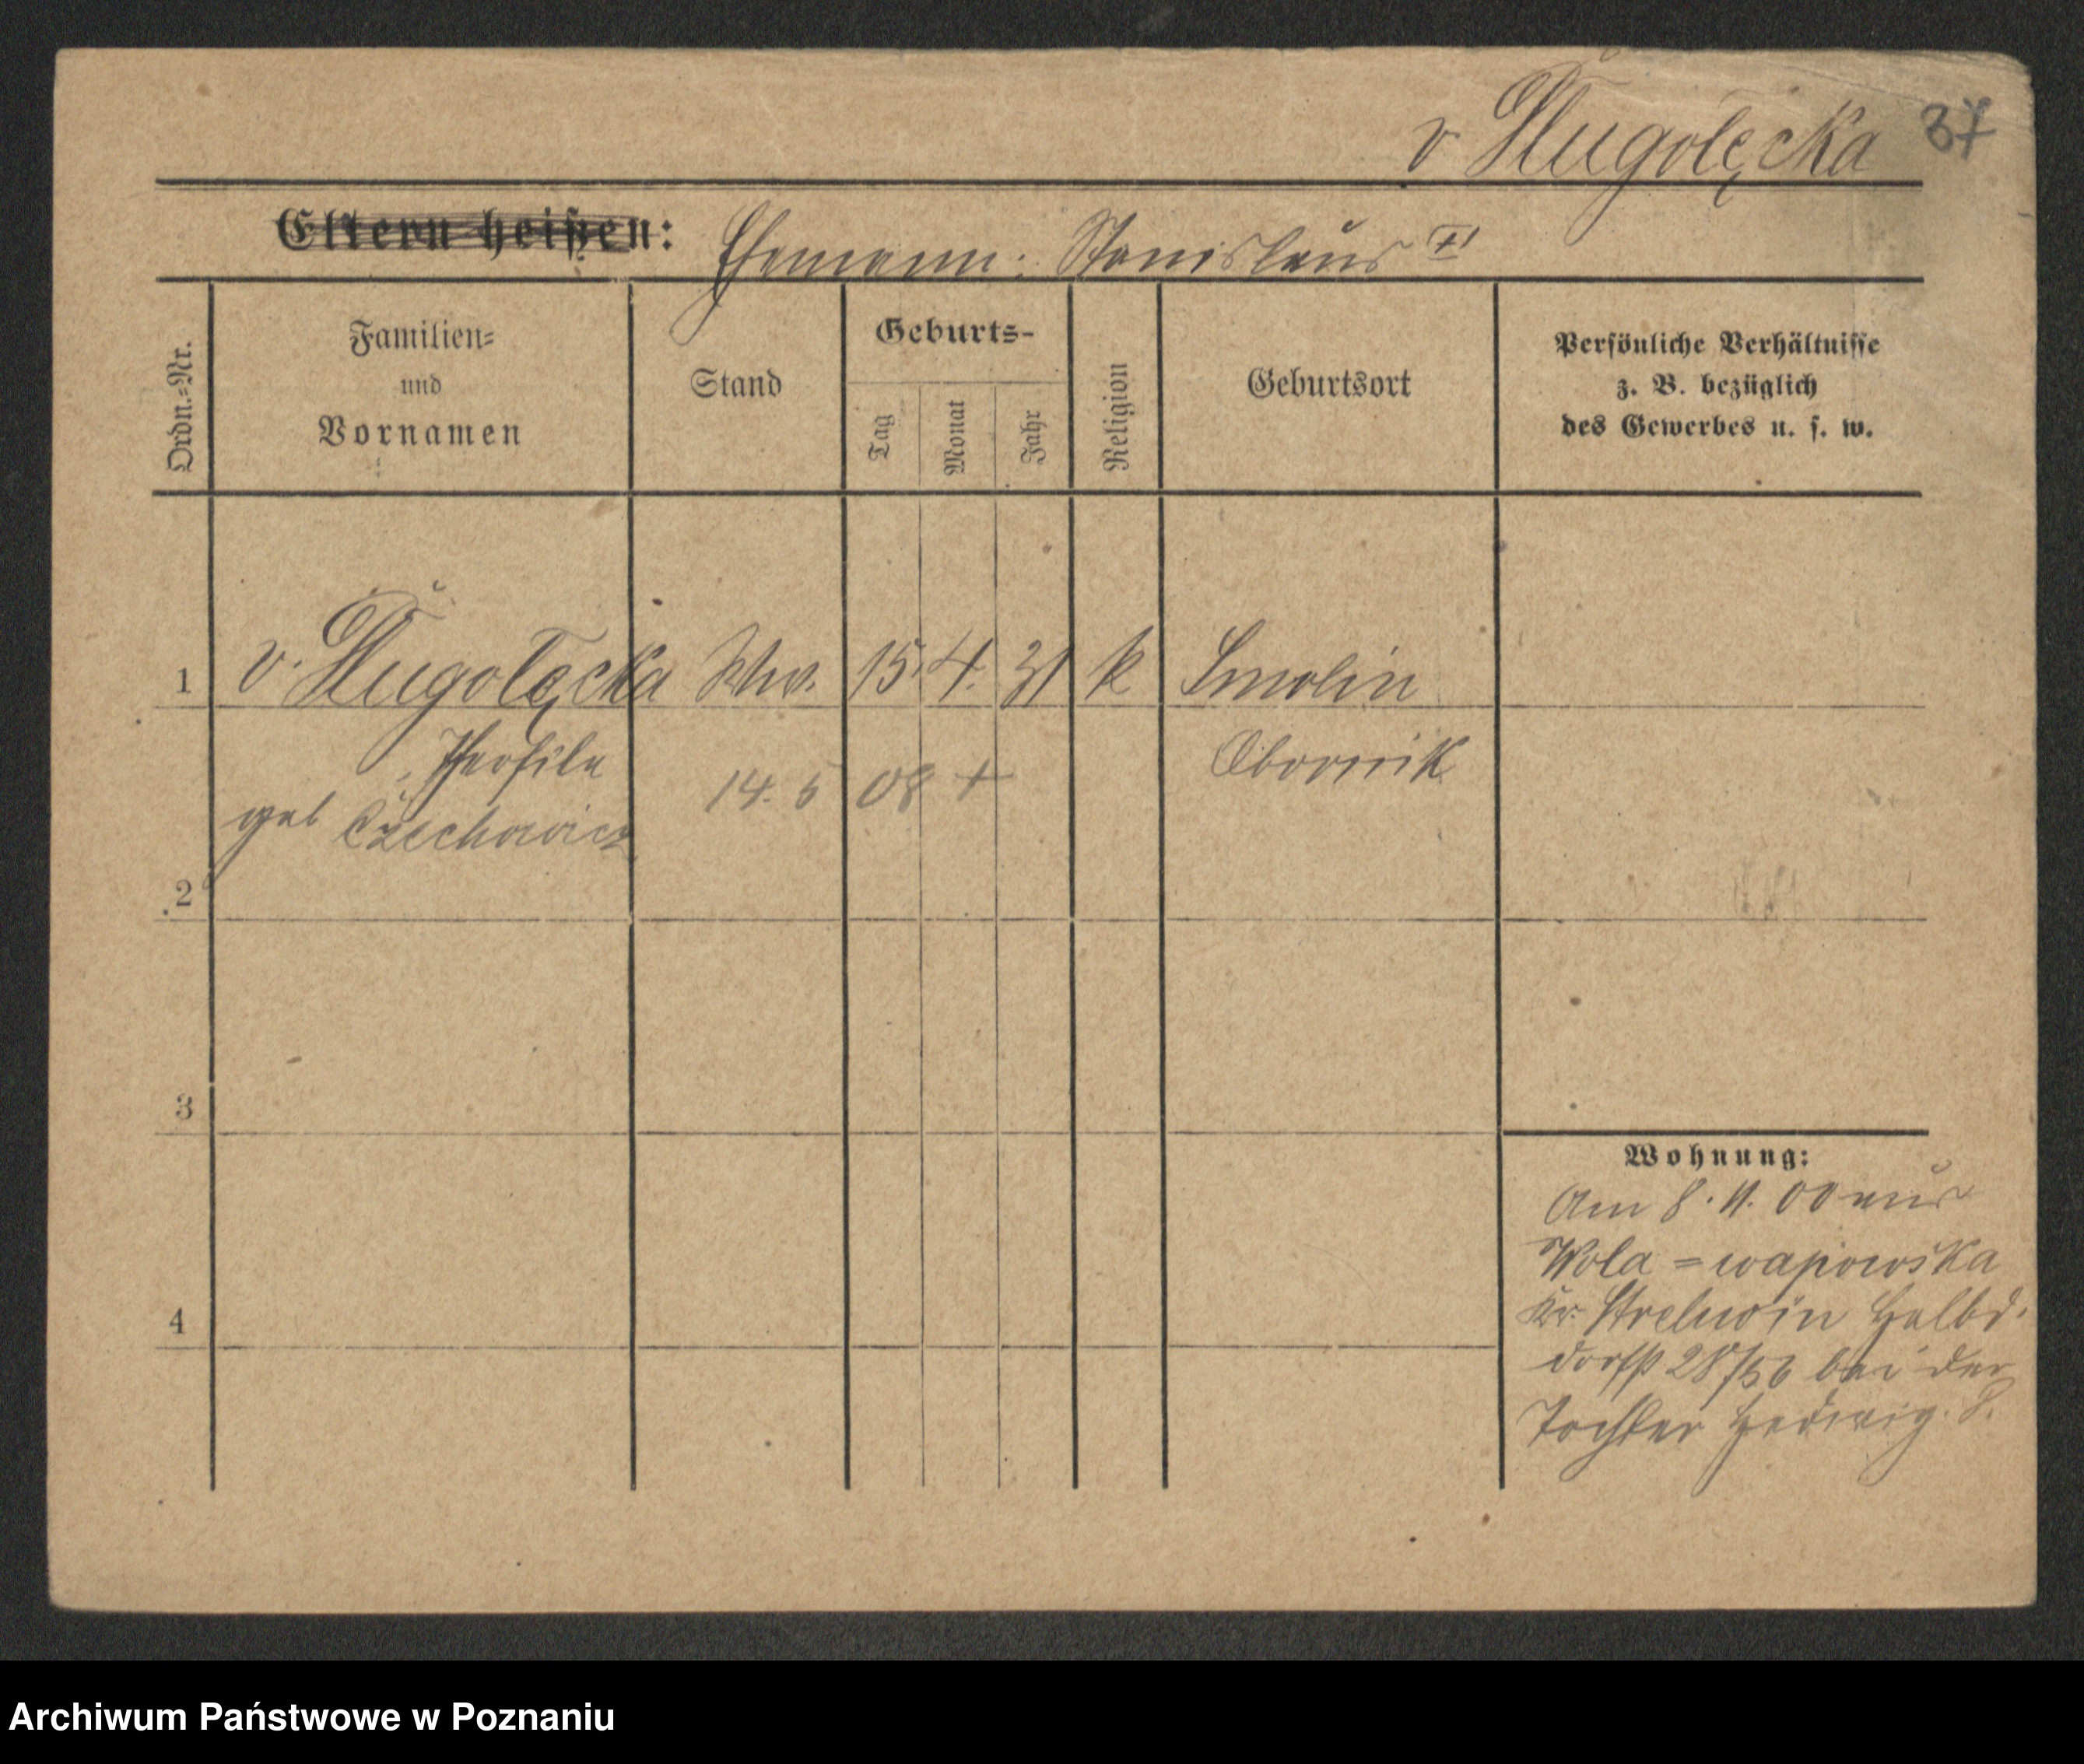 v Długołęcka 37
Eltern heißen: Ehemann: Stanislaus [†]
Ordn.=Nr.
Familien=
und
Vornamen
Stand
Geburts-
Tag
Monat
Jahr
Religion
Geburtsort
Persönliche Verhältnisse
z. B. bezüglich
des Gewerbes u. s. w.
1 v. Długołęcka Ww. 15. 4. 31 k Smolin
Theofila 14. 5 08 + Obornik
geb Czechowicz
2
3
4
Wohnung:
Am 8. 11. 00 aus
Wola = wapowska
Kr. Strelno in Halbd.
dorfst 28/36 bei der
Tochter Hedwig.
Archiwum Państwowe w Poznaniu